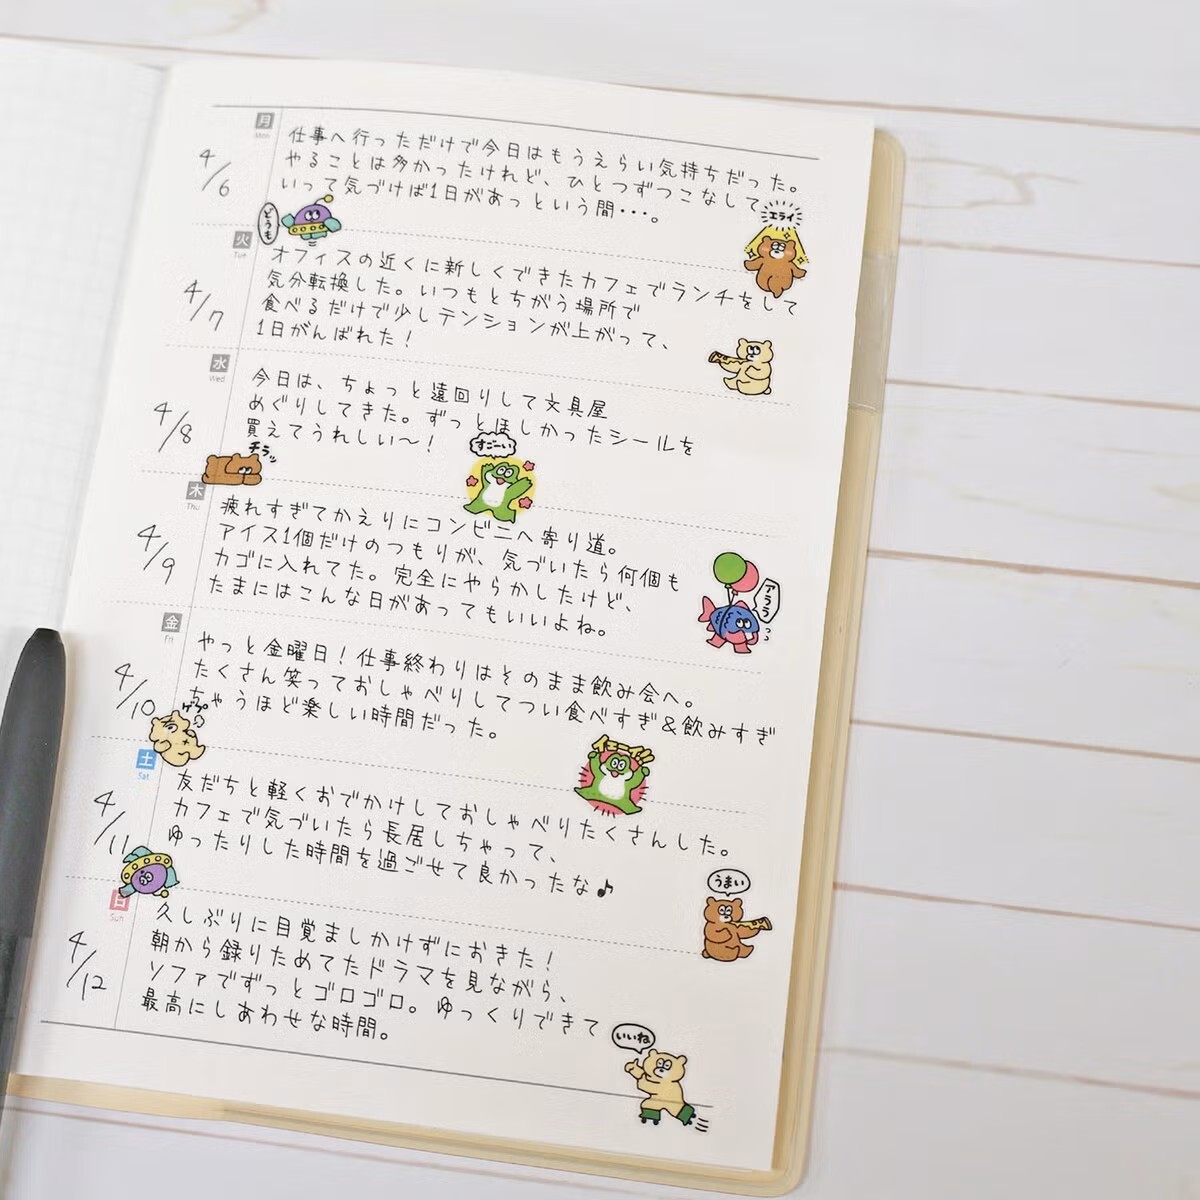 月
Mon
4/6
仕事へ行っただけで今日はもうえらい気持ちだった。
やることは多かったけれど、ひとつずつこなして
いって気づけば1日があっという間・・・。
エライ
どうも
火
Tue
4/7
オフィスの近くに新しくできたカフェでランチをして
気分転換した。いつもとちがう場所で
食べるだけで少しテンションが上がって、
1日がんばれた!
水
Wed
4/8
今日は、ちょっと遠回りして文具屋
めぐりしてきた。ずっとほしかったシールを
買えてうれしい〜!
チラッ
すごーい
木
Thu
4/9
疲れすぎてかえりにコンビニへ寄り道。
アイス1個だけのつもりが、気づいたら何個も
カゴに入れてた。完全にやらかしたけど、
たまにはこんな日があってもいいよね。
アララ
金
Fri
4/10
やっと金曜日!仕事終わりはそのまま飲み会へ。
たくさん笑っておしゃべりしてつい食べすぎ&飲みすぎ
ちゃうほど楽しい時間だった。
ゲプ
土
Sat
4/11
友だちと軽くおでかけしておしゃべりたくさんした。
カフェで気づいたら長居しちゃって、
ゆったりした時間を過ごせて良かったな♪
うまい
日
Sun
4/12
久しぶりに目覚ましかけずにおきた!
朝から録りためてたドラマを見ながら、
ソファでずっとゴロゴロ。ゆっくりできて
最高にしあわせな時間。
いいね